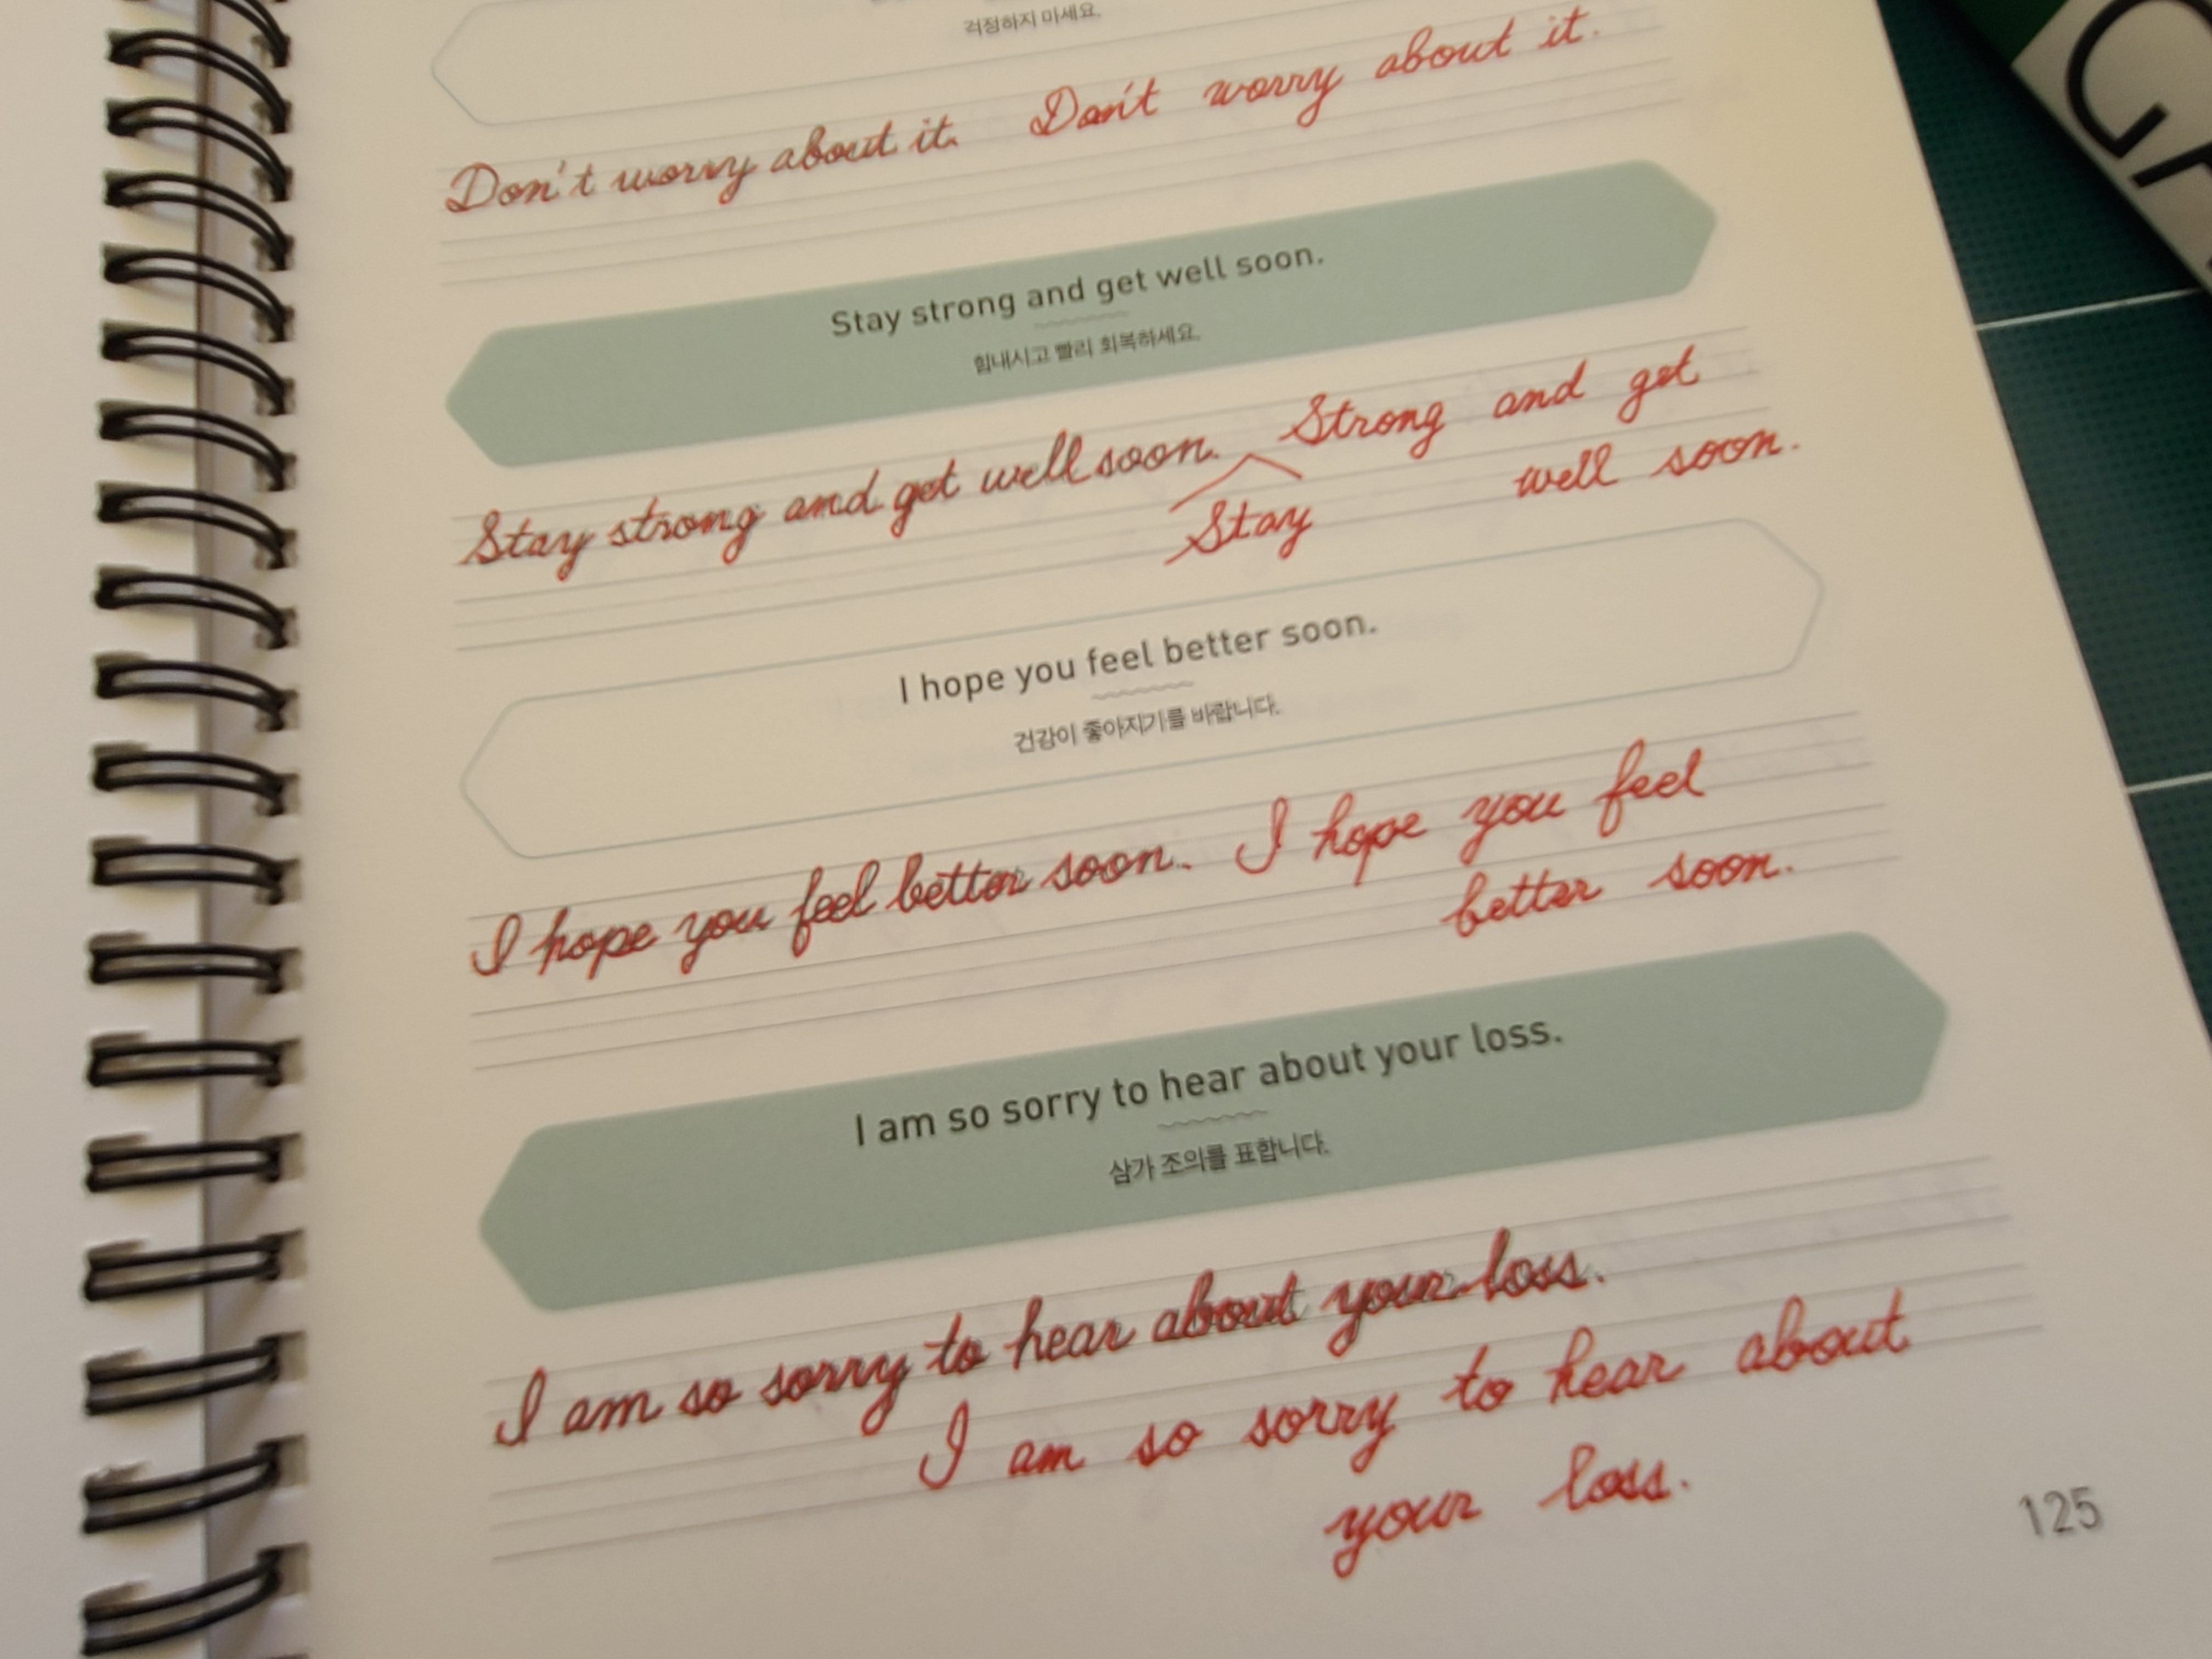 걱정하지 마세요.
Don't worry about it. Don't worry about it.
Stay strong and get well soon.
힘내시고 빨리 회복하세요.
Stay strong and get well soon. Strong and get
Stay well soon.
I hope you feel better soon.
건강이 좋아지기를 바랍니다.
I hope you feel better soon. I hope you feel
better soon.
I am so sorry to hear about your loss.
삼가 조의를 표합니다.
I am so sorry to hear about your loss.
I am so sorry to hear about
your loss.
125